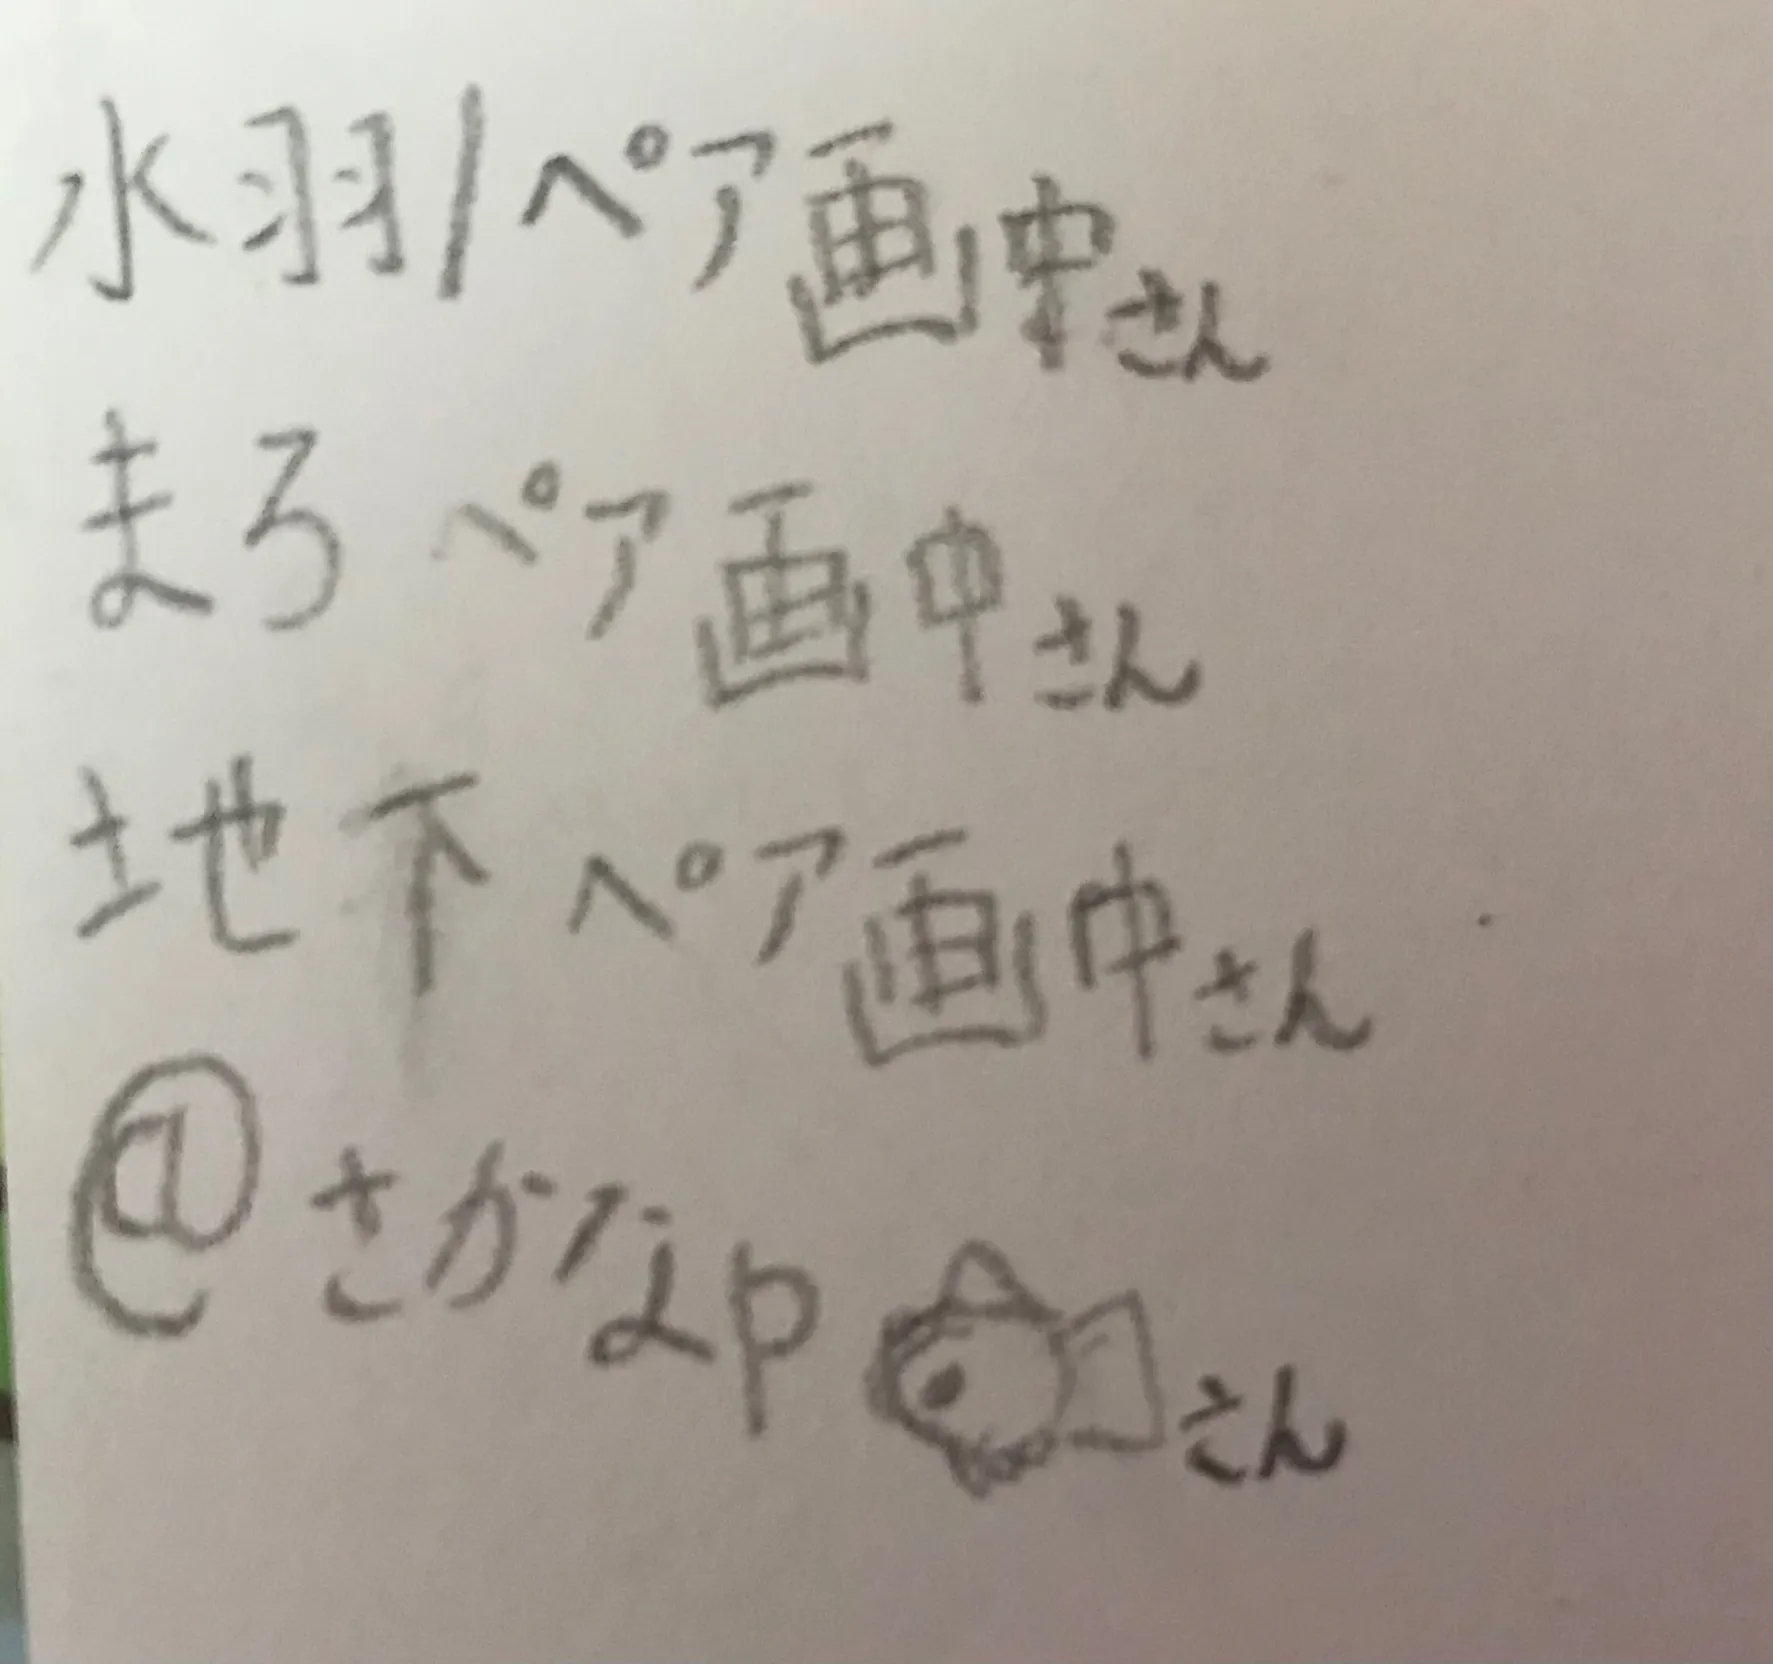 水羽/ペア画中さん
まろペア画中さん
地下ペア画中さん
@さかなpさん